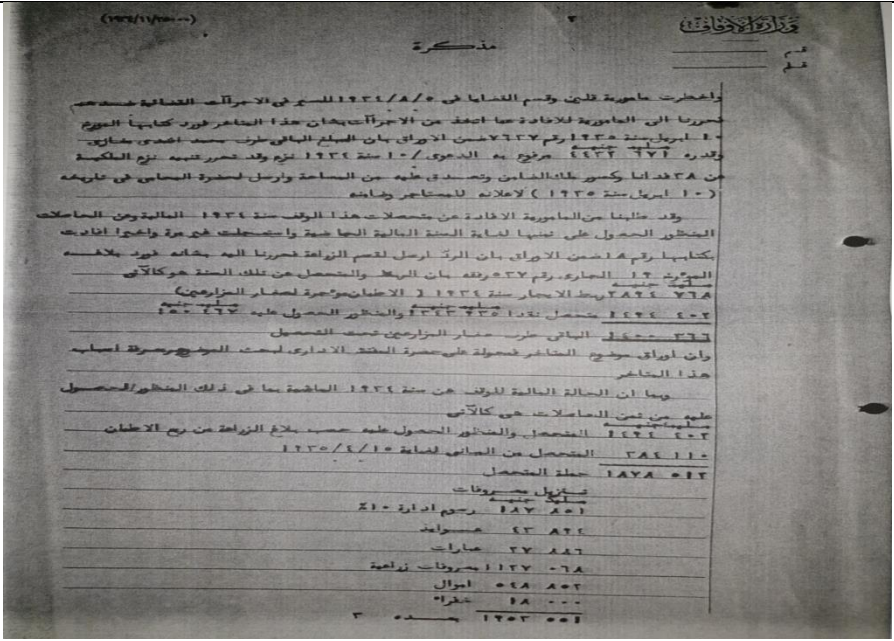 (١٩٣٤/١١/٢٥٠٠٠)
٢
وزارة الأوقاف
قسم
قلم
مذكرة
واخطرت مأمورية قلين وقسم القضايا فى ١٩٣٤/٨/٥ للسير فى الاجراآت القضائية ضدهم
فحررنا الى المأمورية للافادة عما اتخذ من الاجراآت بشأن هذا المتأخر فورد كتابها المؤرخ
١٠ ابريل سنة ١٩٣٥ رقم ٧٦٣٧ ضمن الاوراق بان المبلغ الباقى طرف محمد افندى
مليم جنيه
وقدره ٦٧١ ٤٤٣٢ مرفوع به الدعوى ١٠/ سنة ١٩٣٤ نزع وقد تحرر تنبيه نزع الملكية
عن ٣٨ فدانا وكسور ملك الضامن وتصدق عليه من المساحة وارسل لحضرة المحامى فى تاريخه
( ١٠ ابريل سنة ١٩٣٥ ) لاعلانه للمستأجر وضامنه
وقد طلبنا من المأمورية الافادة عن متحصلات هذا الوقف سنة ١٩٣٤ المالية وعن الحاصلات
المنظور الحصول على ثمنها لغاية السنة المالية الماضية واستعجلت غير مرة واخيرا افادت
بكتابها رقم ٨ ضمن الاوراق بان الرد ارسل لقسم الزراعة فحررنا اليه بشأنه فورد بلاغه
المؤرخ ١٩ الجارى رقم ٥٣٧ رفقه بان الربط والمتحصل عن تلك السنة هو كالآتى
مليم جنيه
٧٦٨ ٢٨٩٤ ربط الايجار سنة ١٩٣٤ ( الاطيان مؤجرة لصغار المزارعين)
مليم جنيه مليم جنيه
٤٠٢ ١٤٩٤ متحصل نقدا ٩٣٥ ١٣٤٣ والمنظور الحصول عليه ٤٦٧ ١٥٠
٣٦٦ ١٤٠٠ الباقى طرف صغار المزارعين تحت التحصيل
وان اوراق موضوع المتأخر محولة على حضرة المفتش الادارى لبحث الموضوع ومعرفة اسباب
هذا المتأخر
وبما ان الحالة المالية للوقف عن سنة ١٩٣٤ الماضية بما فى ذلك المنظور الحصول
عليه من ثمن الحاصلات هى كالآتى
مليم جنيه
٤٠٢ ١٤٩٤ المتحصل والمنظور الحصول عليه حسب بلاغ الزراعة من ريع الاطيان
١١٠ ٣٨٤ المتحصل من المبانى لغاية ١٩٣٥/٤/١٥
٥١٢ ١٨٧٨ جملة المتحصل
تنازيل مصروفات
مليم جنيه
٨٥١ ١٨٧ رسوم ادارة ١٠٪
٨٩٤ ٤٣ عوايد
٨٨٦ ٢٧ عمارات
٠٦٨ ١١٢٧ مصروفات زراعية
٨٥٢ ٥٤٨ اموال
٠٠٠ ١٨ خفراء
٥٥١ ١٩٥٣ بعده ٣